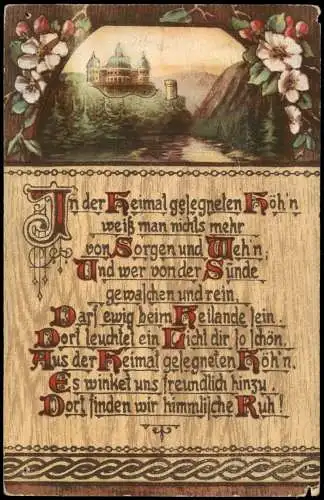 In der Heimat gesegneten Höh'n
weiß man nichts mehr
von Sorgen und Weh'n,
Und wer von der Sünde
gewaschen und rein,
Darf ewig beim Heilande sein.
Dort leuchtet ein Licht dir so schön,
Aus der Heimat gesegneten Höh'n.
Es winket uns freundlich hinzu.
Dort finden wir himmlische Ruh!